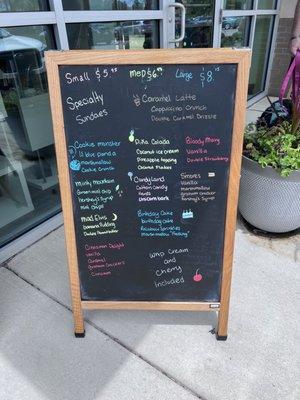 Small $5.75 med $6.75 Large $8.75
Specialty
Sundaes
Caramel Latte
Cappucino Crunch
Double Caramel Drizzle
Cookie monster
lil blue panda
marshmallow
Cookie Crumble
Piña Colada
Coconut ice cream
Pineapple topping
Coconut Flakes
Bloody Mary
Vanilla
Double Strawberry
Minty Mountain
mint choco chip
Hershey's Syrup
Mint Chips
Candyland
Cotton Candy
Unicorn bark
S'mores
Vanilla
marshmallow
graham crackers
Hershey's Syrup
Mad Elvis
banana Pudding
Double Peanut Butter
Birthday Cake
birthday cake
Rainbow Sprinkles
marshmallow "frosting"
Cinnamon Delight
Vanilla
Caramel
graham Crackers
Cinnamon
Whip Cream
and
Cherry
Included